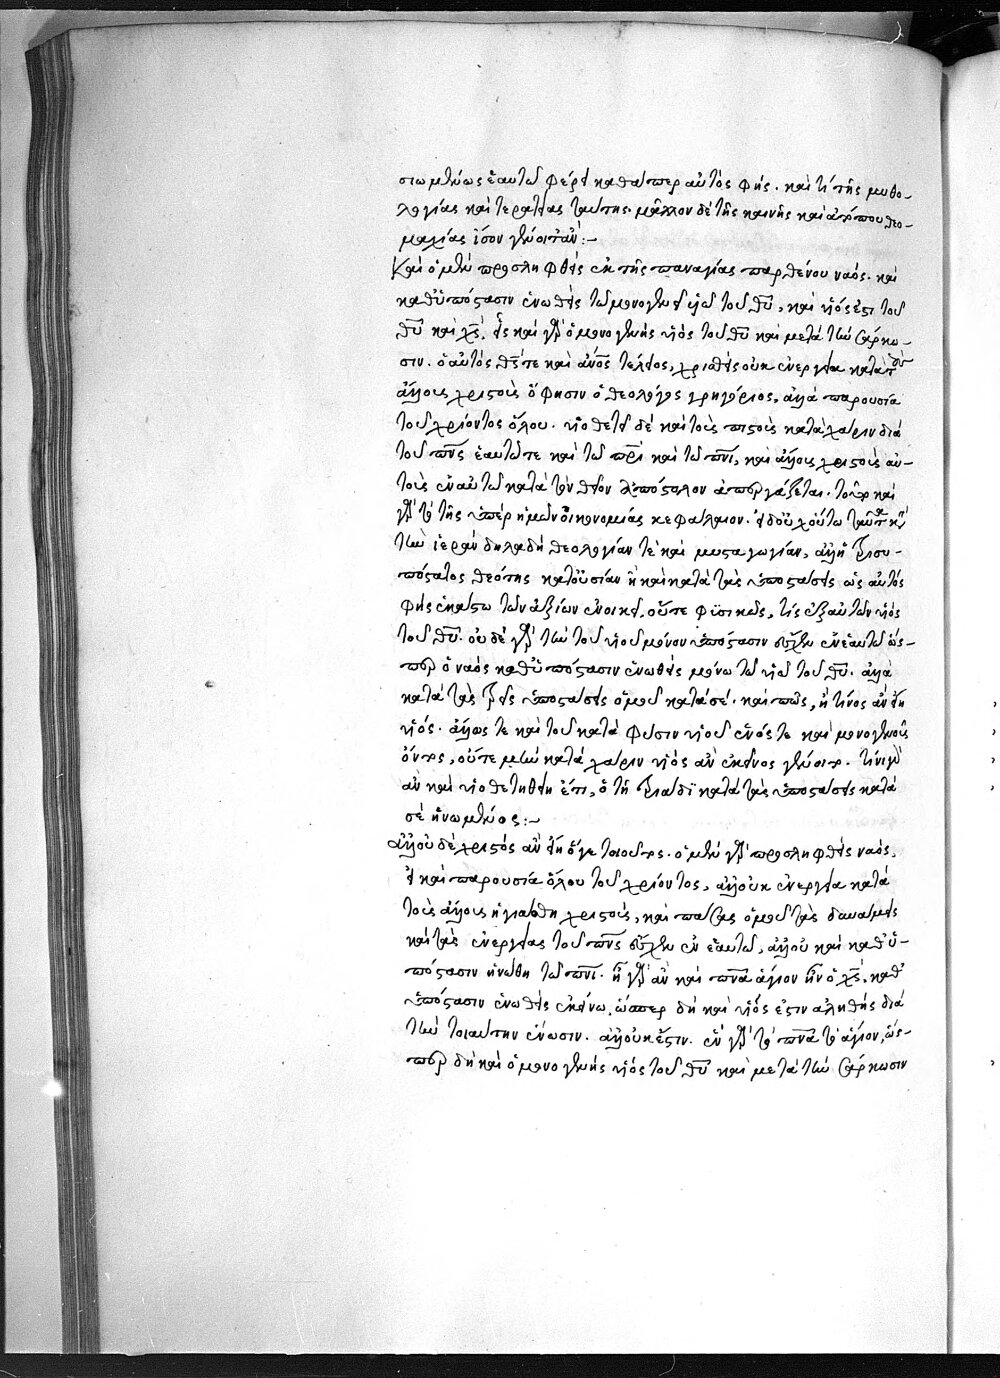 σιωμένως ἑαυτῶ φέρει καθάπερ αὐτὸς φής. καὶ τί τῆς μυθο-
λογίας καὶ τερατείας ταύτης. μᾶλλον δὲ τῆς καινῆς καὶ ἀτόπου θεο-
μαχίας ἴσον γένοιτ' ἄν :-
Καὶ ὁ μὲν προσληφθεὶς ἐκ τῆς παναγίας παρθένου ναὸς. καὶ
καθ' ὑπόστασιν ἑνωθεὶς τῶ μονογενεῖ υἱῶ τοῦ θυ, καὶ υἱός ἐστι τοῦ
θυ καὶ χς. εἷς καὶ γὰρ ὁ μονογενὴς υἱὸς τοῦ θυ καὶ μετὰ τὴν σάρκω-
σιν. ὁ αὐτὸς θς τε καὶ ανος τέλειος, χρισθεὶς οὐκ ἐνεργεία κατὰ τοὺς
ἄλλους χριστοὺς ὥς φησιν ὁ θεολόγος γρηγόριος, ἀλλὰ παρουσία
τοῦ χρίοντος ὅλου. υἱοθετεῖ δὲ καὶ τοὺς πιστοὺς κατὰ χάριν διὰ
τοῦ πνς ἑαυτῶ τε καὶ τῶ πρὶ καὶ τῶ πνι, καὶ ἄλλους χριστοὺς αὐ-
τοὺς ἐν αὐτῶ κατὰ τὸν θεῖον ἀπόστολον ἀπεργάζεται. τοῦτο καὶ
γὰρ τὸ τῆς ὑπὲρ ἡμῶν οἰκονομίας κεφάλαιον. εἰ δ' οὐχ οὕτω
τὴν ἱερὰν δηλαδὴ θεολογίαν τὲ καὶ μυσταγωγίαν, ἀλλ' ἡ τρισυ-
πόστατος θεότης κατ' οὐσίαν ἢ καὶ κατὰ τὰς ὑποστάσεις ὡς αὐτὸς
φὴς ἑκάστω τῶν ἀξίων ἐνοικεῖ, οὔτε φυσικῶς, τίς ἐξ αὐτῶν υἱὸς
τοῦ θυ. οὐδὲ γὰρ τὴν τοῦ υἱοῦ μόνου ὑπόστασιν ἔχει ἐν ἑαυτῶ ὥσ-
περ ὁ ναὸς καθ' ὑπόστασιν ἑνωθεὶς μόνω τῶ υἱῶ τοῦ θυ. ἀλλὰ
κατὰ τὰς τρεῖς ὑποστάσεις ὁμοῦ κατὰ σέ. καὶ πῶς, ἢ τίνος ἂν εἴη
υἱός. ἄλλως τε καὶ τοῦ κατὰ φύσιν υἱοῦ ἑνός τε καὶ μονογενοῦς
ὄντος, οὔτε μὴν κατὰ χάριν υἱὸς ἂν ἐκεῖνος γένοιτο. τίνι γὰρ
ἂν καὶ υἱοθετηθείη ἔτι, ὁ τῆ τριάδι κατὰ τὰς ὑποστάσεις κατὰ
σὲ ἡνωμένος :-
Ἀλλ' οὐδὲ χριστὸς ἂν εἴη ὅγε τοιοῦτος. ὁ μὲν γὰρ προσληφθεὶς ναὸς,
εἰ καὶ παρουσία ὅλου τοῦ χρίοντος, ἀλλ' οὐκ ἐνεργεία κατὰ
τοὺς ἄλλους ἡγιάσθη χριστοὺς, καὶ πάσας ὁμοῦ τὰς δυνάμεις
καὶ τὰς ἐνεργείας τοῦ πνς ἔχει ἐν ἑαυτῶ, ἀλλ' οὐ καὶ καθ' ὑ-
πόστασιν ἡνώθη τῶ πνι. ἦν γὰρ ἂν καὶ πνα ἅγιον ὁ χς, καθ'
ὑπόστασιν ἑνωθεὶς ἐκείνω, ὥσπερ δὴ καὶ υἱός ἐστιν ἀληθὴς διὰ
τὴν τοιαύτην ἕνωσιν. ἀλλ' οὐκ ἔστιν. ἓν γὰρ τὸ πνα τὸ ἅγιον, ὥσ-
περ δὴ καὶ ὁ μονογενὴς υἱὸς τοῦ θυ καὶ μετὰ τὴν σάρκωσιν